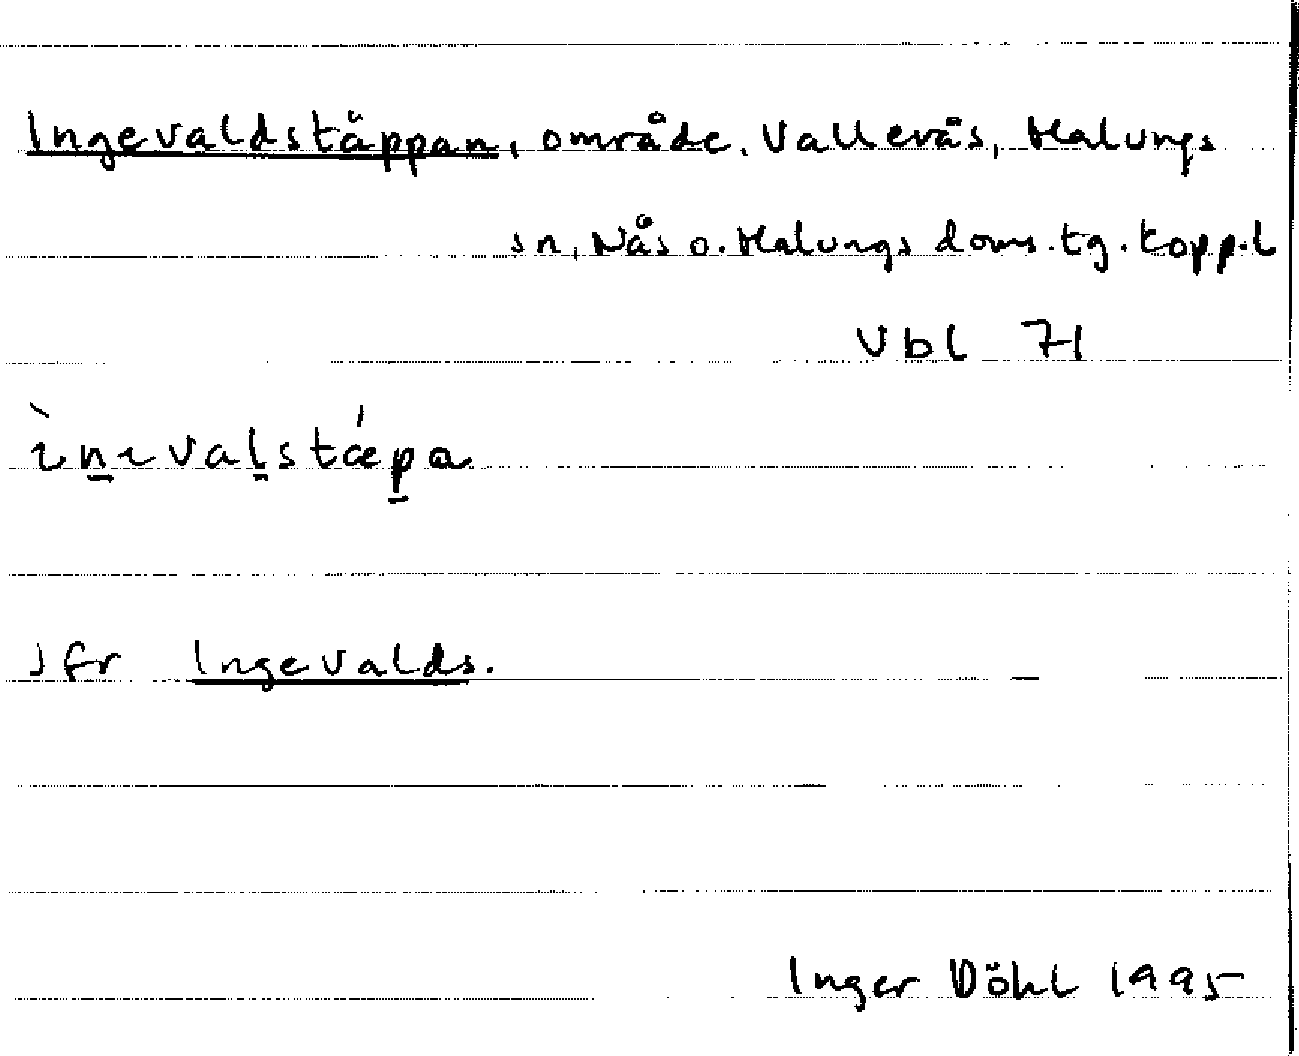 Ingevaldstäppan, område. Vallerås, Malungs
sn, Nås o. Malungs doms.tg. topp.l
Vbl 71
ìn̠ɩval̤stǽp̠a
Jfr Ingevalds.
Inger Döhl 1995